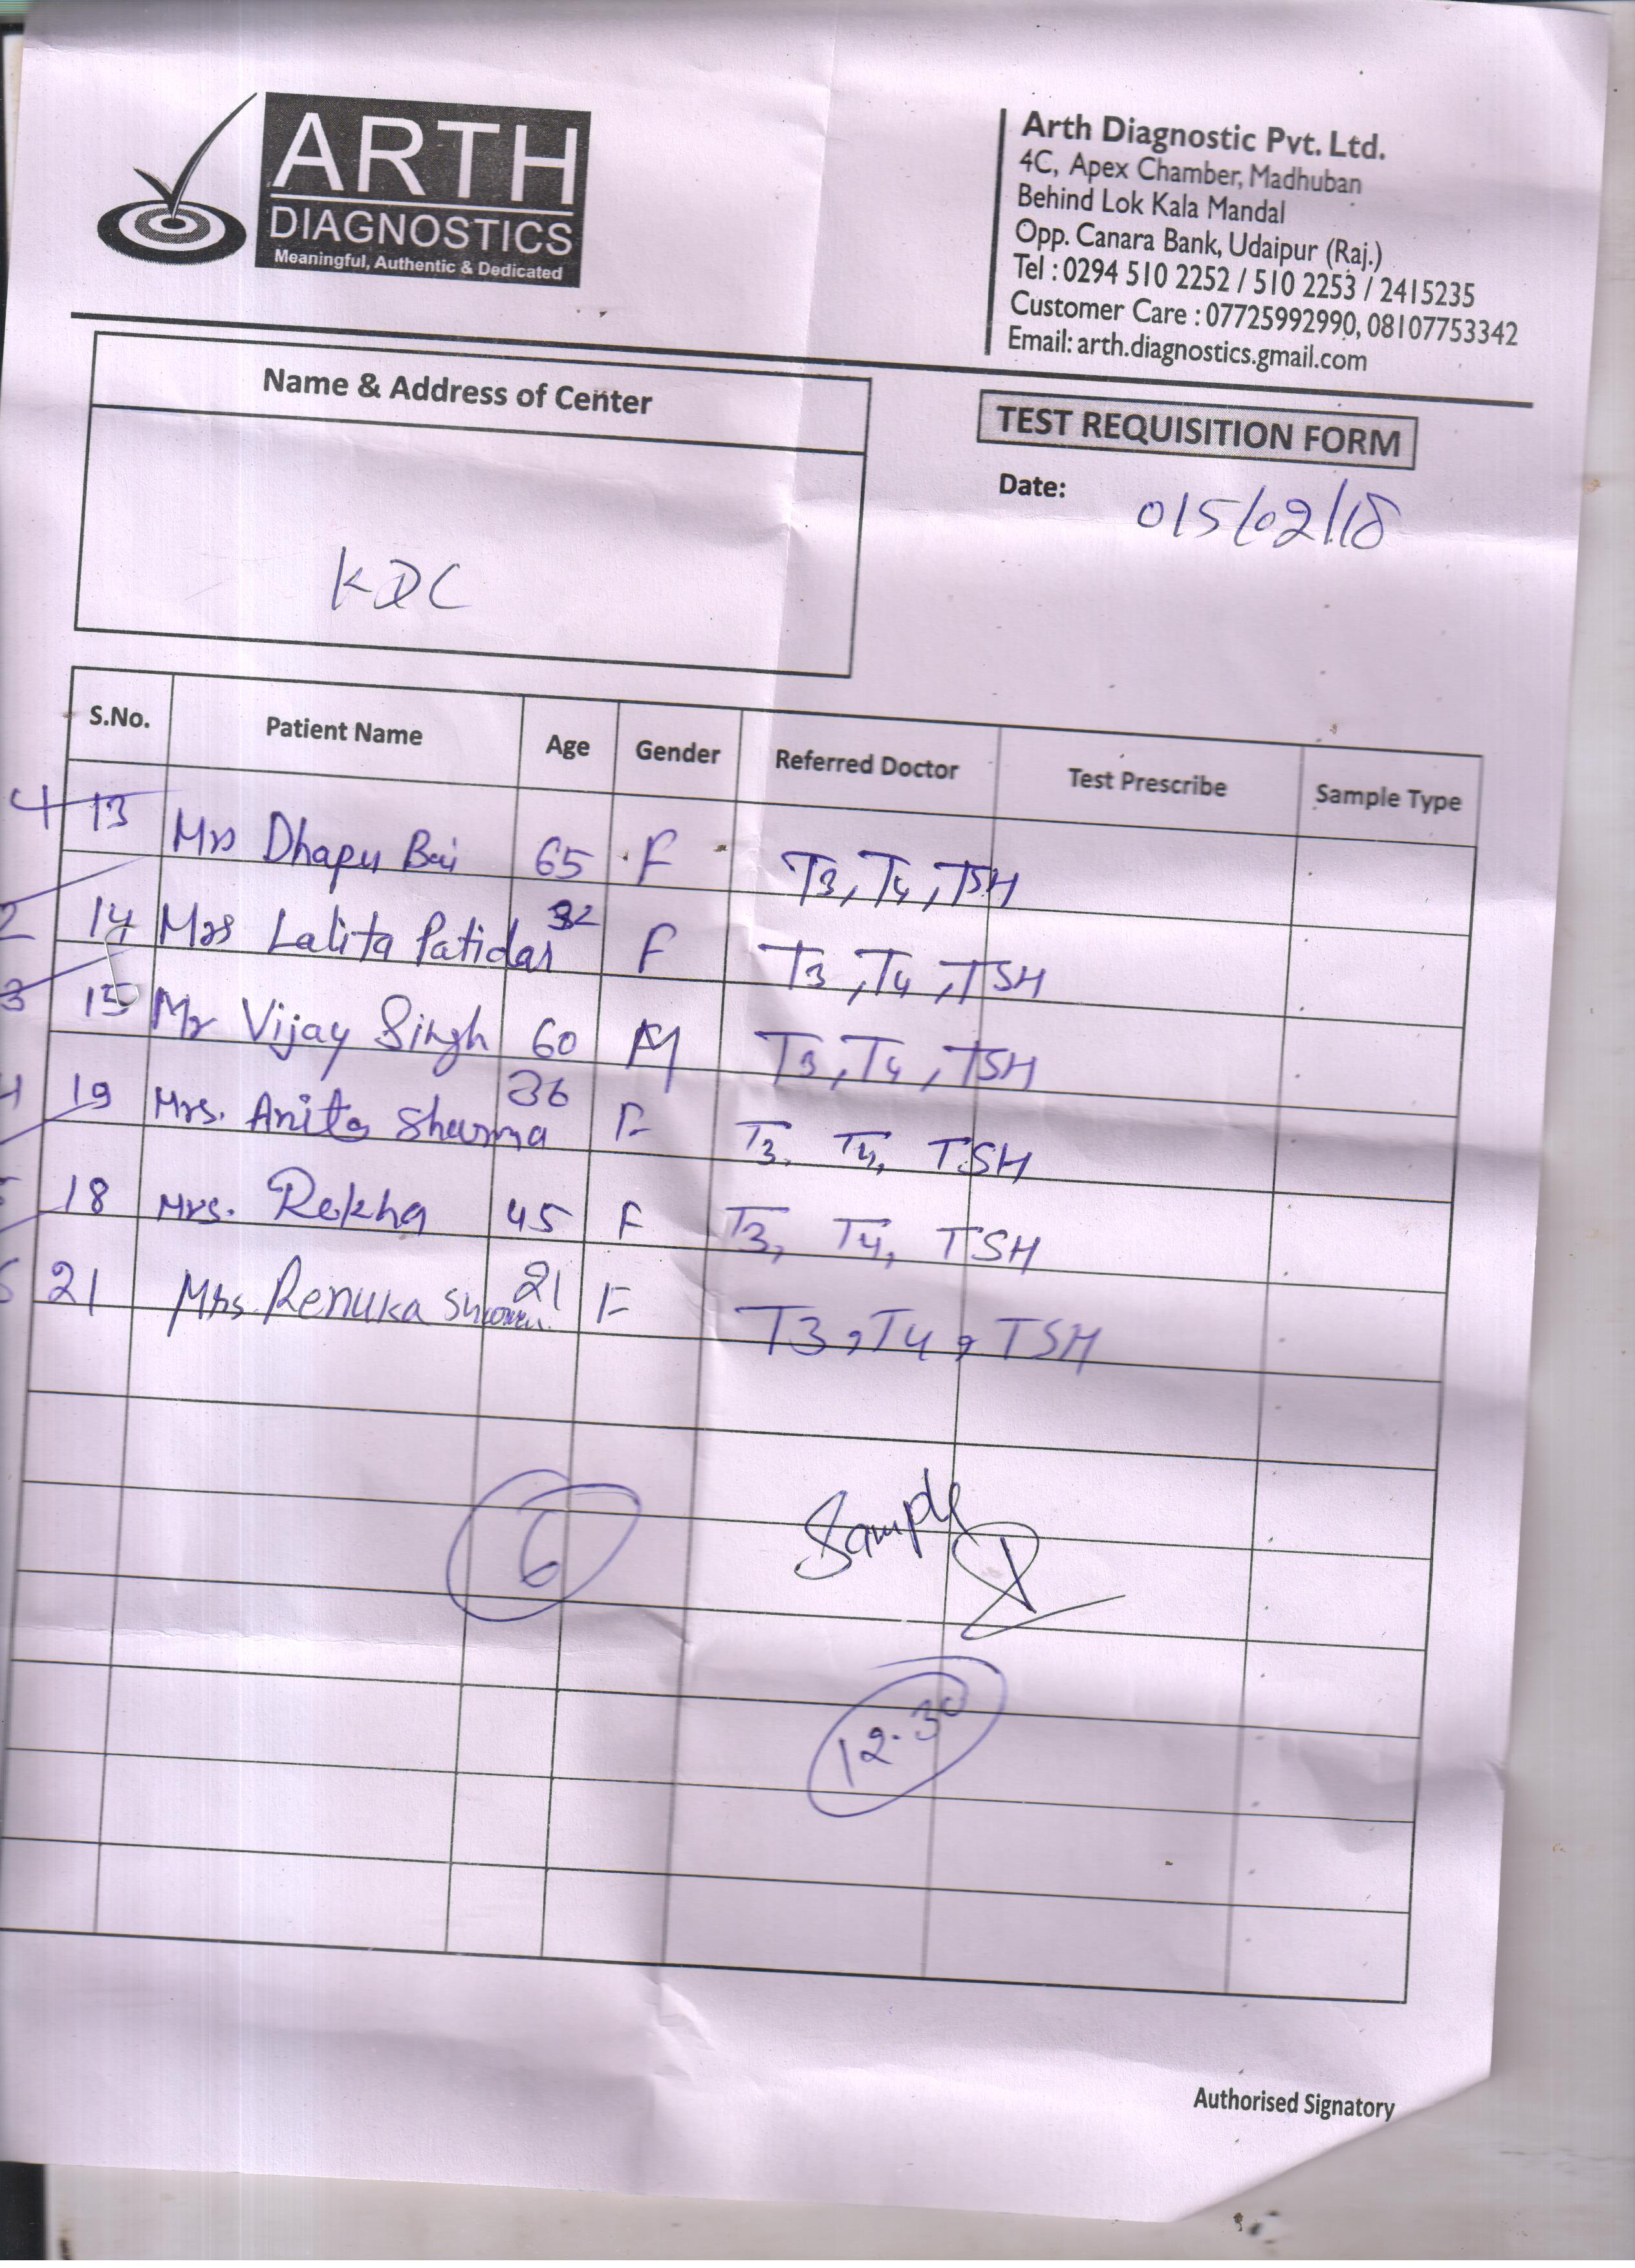 ARTH
DIAGNOSTICS
Meaningful, Authentic & Dedicated
Arth Diagnostic Pvt. Ltd.
4C, Apex Chamber, Madhuban
Behind Lok Kala Mandal
Opp. Canara Bank, Udaipur (Raj.)
Tel : 0294 510 2252 / 510 2253 / 2415235
Customer Care : 07725992990, 08107753342
Email: arth.diagnostics.gmail.com
Name & Address of Center
KDC
TEST REQUISITION FORM
Date: 015/02/18
S.No. Patient Name Age Gender Referred Doctor Test Prescribe Sample Type
13 Mrs Dhapu Bai 65 F T3, T4, TSH
2 14 Mrs Lalita Patidar 32 F T3, T4, TSH
3 15 Mr Vijay Singh 60 M T3, T4, TSH
4 19 Mrs. Anita Sharma 36 F T3, T4, TSH
18 Mrs. Rekha 45 F T3, T4, TSH
21 Mrs. Renuka 21 F T3, T4, TSH
6
Sample
12.30
Authorised Signatory